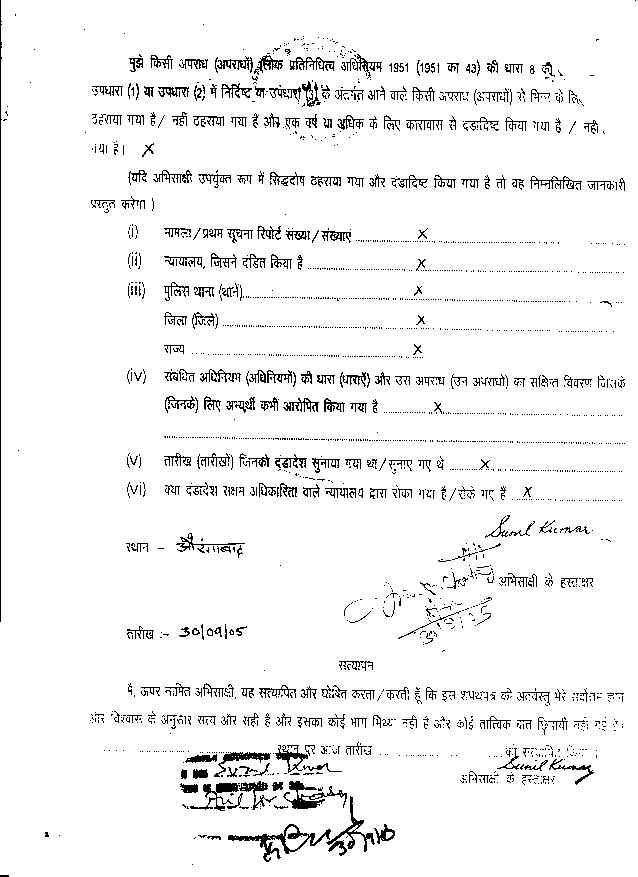 मुझे किसी अपराध (अपराधों) लोक प्रतिनिधित्व अधिनियम 1951 (1951 का 43) की धारा 8 की
उपधारा (1) या उपधारा (2) में निर्दिष्ट या उपधारा (3) के अंतर्गत आने वाले किसी अपराध (अपराधों) से भिन्न के लिए
ठहराया गया है / नहीं ठहराया गया है और एक वर्ष या अधिक के लिए कारावास से दंडादिष्ट किया गया है / नहीं
गया है। X
(यदि अभिसाक्षी उपर्युक्त रूप में सिद्धदोष ठहराया गया और दंडादिष्ट किया गया है तो वह निम्नलिखित जानकारी
प्रस्तुत करेगा )
(i) मामला / प्रथम सूचना रिपोर्ट संख्या / संख्याएं X
(ii) न्यायालय, जिसने दंडित किया है X
(iii) पुलिस थाना (थाने) X
जिला (जिले) X
राज्य X
(iv) संबंधित अधिनियम (अधिनियमों) की धारा (धाराएँ) और उस अपराध (उन अपराधों) का संक्षिप्त विवरण जिसके
(जिनके) लिए अभ्यर्थी कभी आरोपित किया गया है X
(v) तारीख (तारीखों) जिनको दंडादेश सुनाया गया था / सुनाए गए थे X
(vi) क्या दंडादेश सक्षम अधिकारिता वाले न्यायालय द्वारा रोका गया है / रोके गए हैं X
Sunil Kumar
स्थान - औरंगाबाद
अभिसाक्षी के हस्ताक्षर
तारीख :- 30/09/05
सत्यापन
मैं, ऊपर नामित अभिसाक्षी, यह सत्यापित और घोषित करता / करती हूँ कि इस शपथपत्र की अंतर्वस्तु मेरे सर्वोत्तम ज्ञान
और विश्वास के अनुसार सत्य और सही है और इसका कोई भाग मिथ्या नहीं है और कोई तात्विक बात छिपायी नहीं गई है।
स्थान पर आज तारीख को सत्यापित किया।
Sunil Kumar
अभिसाक्षी के हस्ताक्षर
Sunil Kumar
30/9/05